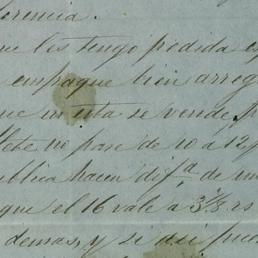 que les tengo pedida
empaque bien arreg
que en esta se vende, p
flete no pase de 10 a 12 p
ublica hacen dif.ª de
que el 16 vale a 3 rs
demas, y si asi